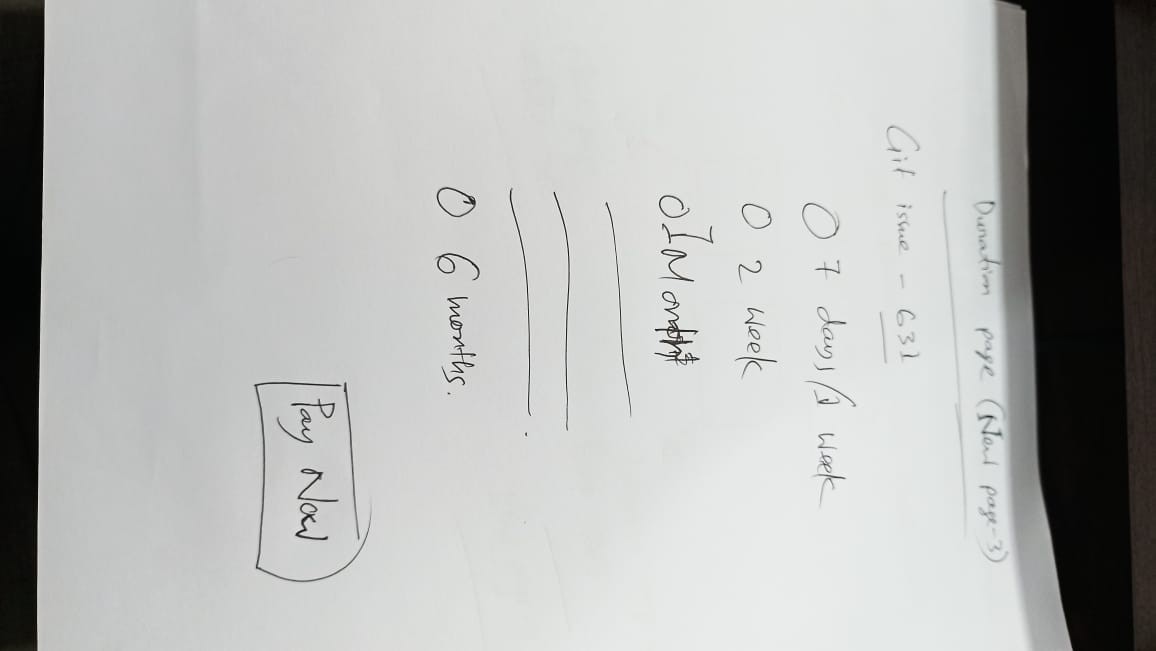 Duration page (New page-3)
Git issue - 632
O 7 days/1 week
O 2 week
O 1 Month
O 6 months.
Pay Now